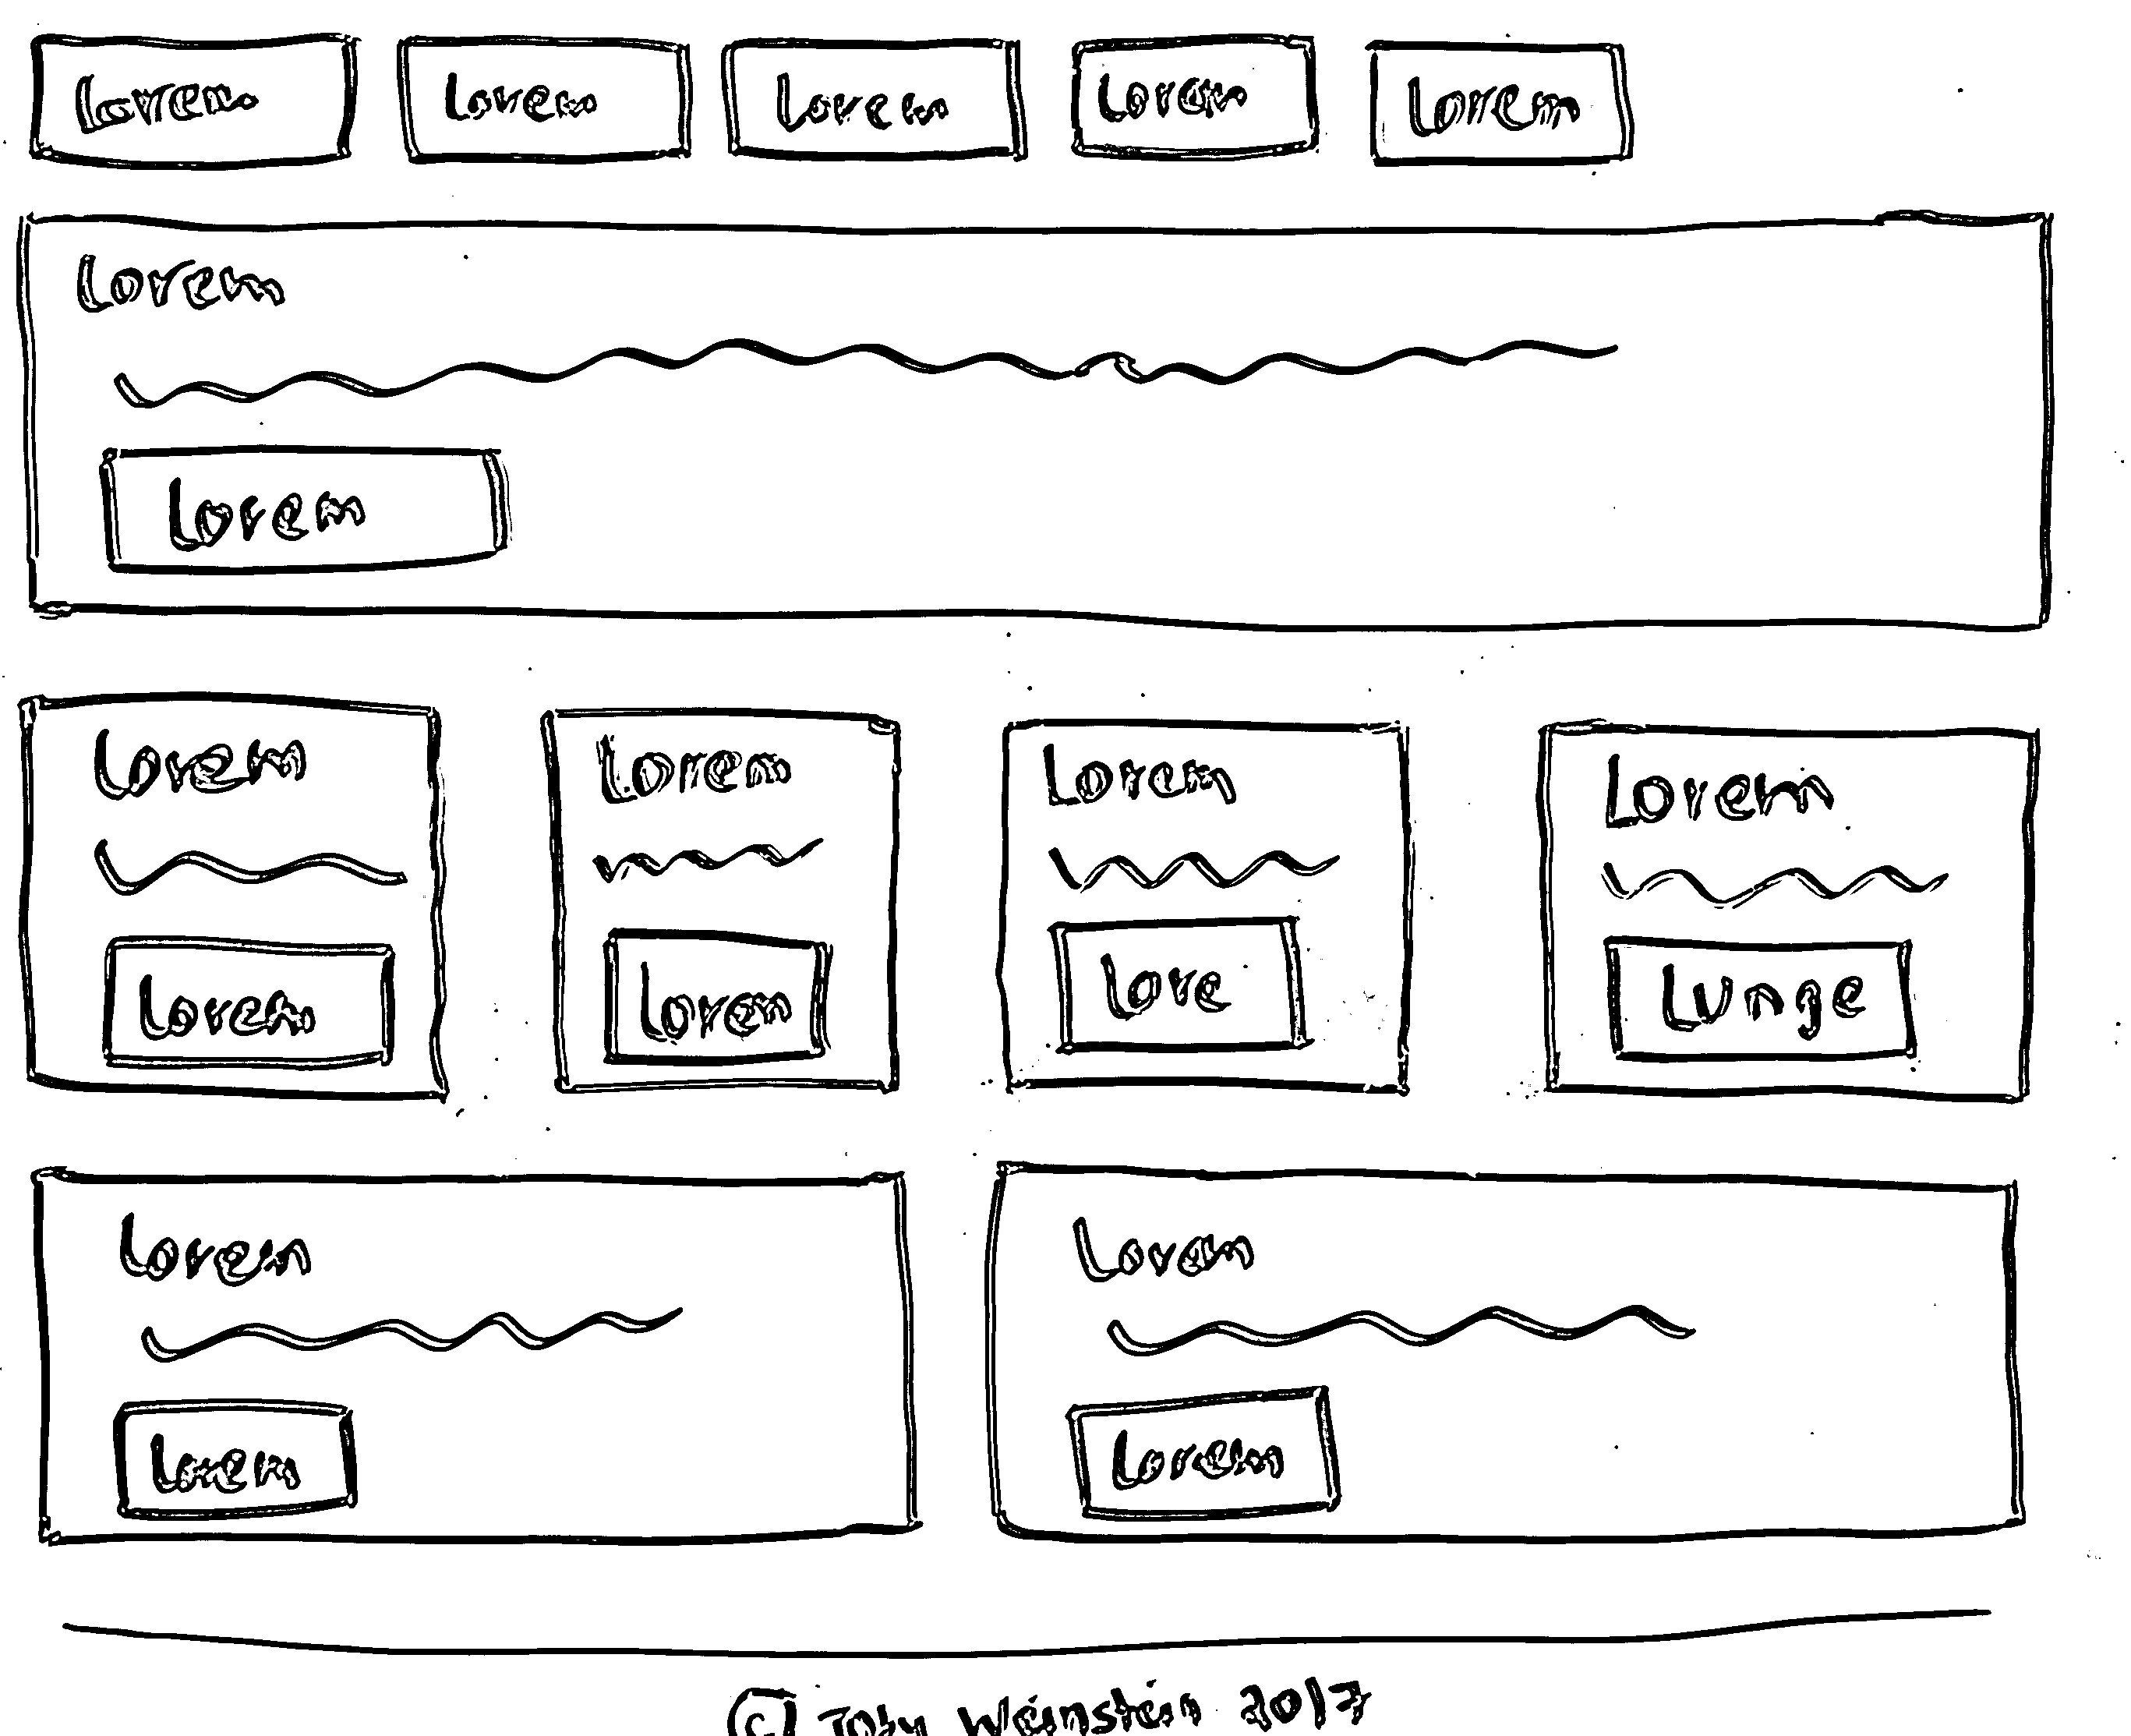 Lorem Lorem Lorem Lorem Lorem
Lorem
Lorem
Lorem Lorem Lorem Lorem
Lorem Lorem Love Lunge
Lorem Lorem
Lorem Lorem
© Toby Weinstein 2017